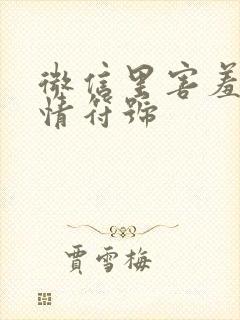 微信里害羞
情符號
賈雪梅